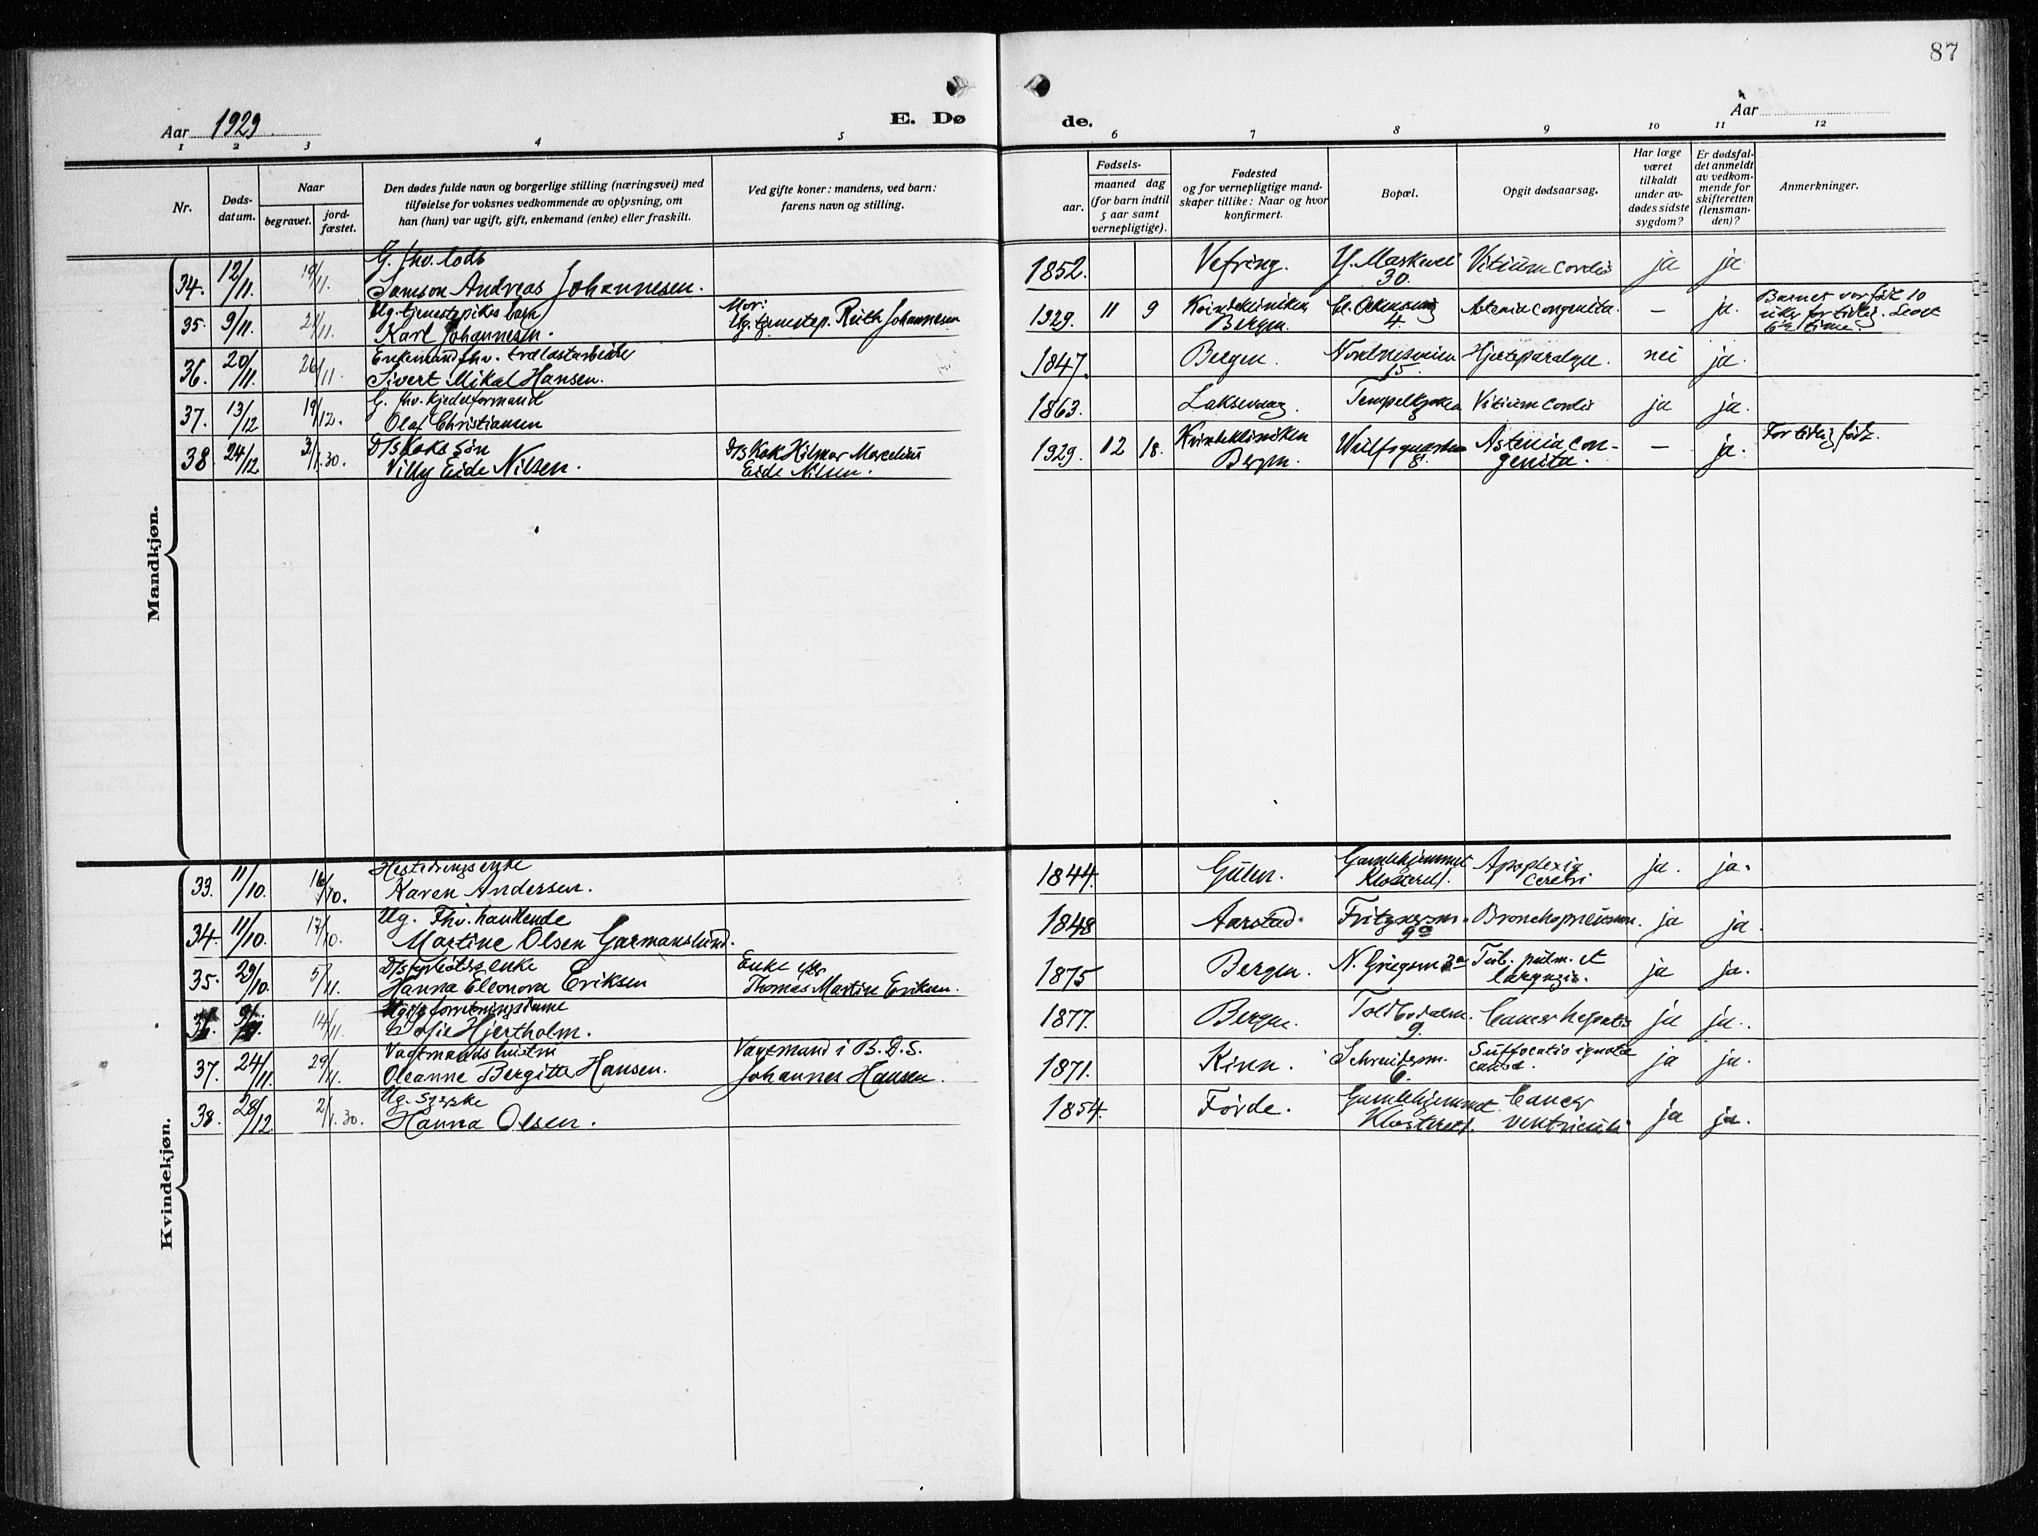 87
Aar 1929
E. Dø
de.
Aar
1 2 3 4 5 6 7 8 9 10 11 12
Nr.
Døds-
datum.
Naar
begravet.
jord-
fæstet.
Den dødes fulde navn og borgerlige stilling (næringsvei) med
tilføielse for voksnes vedkommende av oplysning, om
han (hun) var ugift, gift, enkemand (enke) eller fraskilt.
Ved gifte koner: mandens, ved barn:
farens navn og stilling.
Fødsels-
aar.
maaned dag
(for barn indtil
5 aar samt
vernepligtige).
Fødested
og for vernepligtige mand-
skaper tillike: Naar og hvor
konfirmert.
Bopæl.
Opgit dødsaarsag.
Har læge
været
tilkaldt
under av-
dødes sidste
sygdom?
Er dødsfal-
det anmeldt
av vedkom-
mende for
skifteretten
(lensman-
den)?
Anmerkninger.
Mandkjøn.
G. fhv. lods
34. 12/11. 19/11. Samson Andreas Johannesen. 1852. Vefring. 30. Vitium cordis ja ja
Ug. tjenestepikes barn Mor:
35. 9/11. 21/11. Karl Johannesen. Ug. tjenestep. Ruth Johannesen 1929. 11 9 Kvindekliniken Bergen. 4. Astenia congenita. — ja. Barnet var født 10
uker for tidlig. Levet
6 1/2 time.
Enkemand fhv. trælastarbeider
36. 20/11. 26/11. Sivert Mikal Hansen. 1847. Bergen. Nordnesveien 15. Hjerteparalyse. nei ja.
G. fhv. kjedelformand
37. 13/12 19/12. Olaf Christiansen 1863. Laksevaag. Vitium cordis ja ja.
D/s koks søn
38. 24/12. 3/1.30. Villy Eide Nilsen. D/s Kok Hilmar Marcelius
Eide Nilsen. 1929. 12 18. Kvindekliniken
Bergen. 8. Astenia con-
genita. — ja. For tidlig født.
Kvindekjøn.
33. 11/10. 16/10. Karen Andersen. 1844. Gulen. Gamlehjemmet
Klosteret. Apoplexia
cerebri ja. ja.
Ug. Fhv. handlende
34. 11/10. 17/10. Martine Olsen Garmanslund. 1848 Aarstad. 9a Bronchopneumon. ja ja.
D/s fyrbøters enke Enke efter
35. 29/10. 5/11. Hanna Eleonora Eriksen Thomas Martin Eriksen. 1875 Bergen. N. Griegsm 3a Tub. pulm. et
laryngis. ja ja.
36. 14/11. Sofie Hjertholm. 1877. Bergen. Toldbodalm.
9. Cancer hepatis ja ja.
Vagtmands hustru Vagtmand i B.D.S.
37. 24/11. 29/11. Oleanne Bergitte Hansen. Johannes Hansen. 1871. Kinn. 6. Suffocatio ignota
causa. ja ja.
Ug. syerske
38. 28/12. 2/1.30. Hanna Olsen. 1854. Førde. Gamlehjemmet
Klosteret. Cancer
ventriculi ja ja.